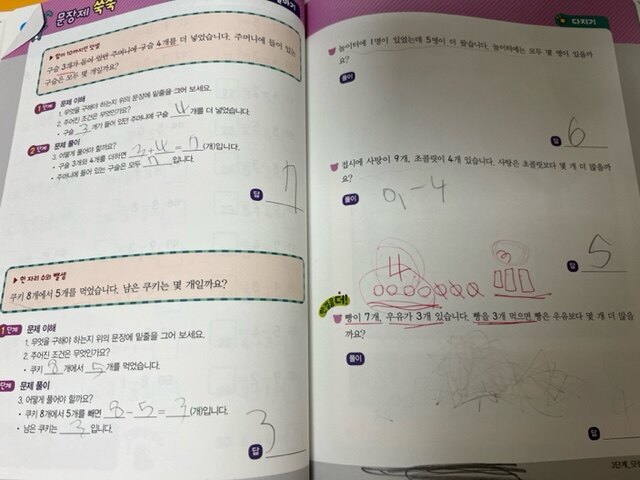 문장제 쑥쑥
▶ 합이 10까지인 덧셈
구슬 3개가 들어 있던 주머니에 구슬 4개를 더 넣었습니다. 주머니에 들어 있는
구슬은 모두 몇 개일까요?
1단계 문제 이해
1. 무엇을 구해야 하는지 위의 문장에 밑줄을 그어 보세요.
2. 주어진 조건은 무엇인가요?
• 구슬 3개가 들어 있던 주머니에 구슬 4개를 더 넣었습니다.
2단계 문제 풀이
3. 어떻게 풀어야 할까요?
• 구슬 3개와 4개를 더하면 3+4=7(개)입니다.
• 주머니에 들어 있는 구슬은 모두 7입니다.
답 7
▶ 한 자리 수의 뺄셈
쿠키 8개에서 5개를 먹었습니다. 남은 쿠키는 몇 개일까요?
1단계 문제 이해
1. 무엇을 구해야 하는지 위의 문장에 밑줄을 그어 보세요.
2. 주어진 조건은 무엇인가요?
• 쿠키 8개에서 5개를 먹었습니다.
단계 문제 풀이
3. 어떻게 풀어야 할까요?
• 쿠키 8개에서 5개를 빼면 8-5=3(개)입니다.
• 남은 쿠키는 3입니다.
답 3
다지기
놀이터에 1명이 있었는데 5명이 더 왔습니다. 놀이터에는 모두 몇 명이 있을까
요?
풀이
답 6
접시에 사탕이 9개, 초콜릿이 4개 있습니다. 사탕은 초콜릿보다 몇 개 더 많을까
요?
풀이 9-4
답 5
4
3
빵이 7개, 우유가 3개 있습니다. 빵을 3개 먹으면 빵은 우유보다 몇 개 더 많을
까요?
풀이
답
3단계_덧셈